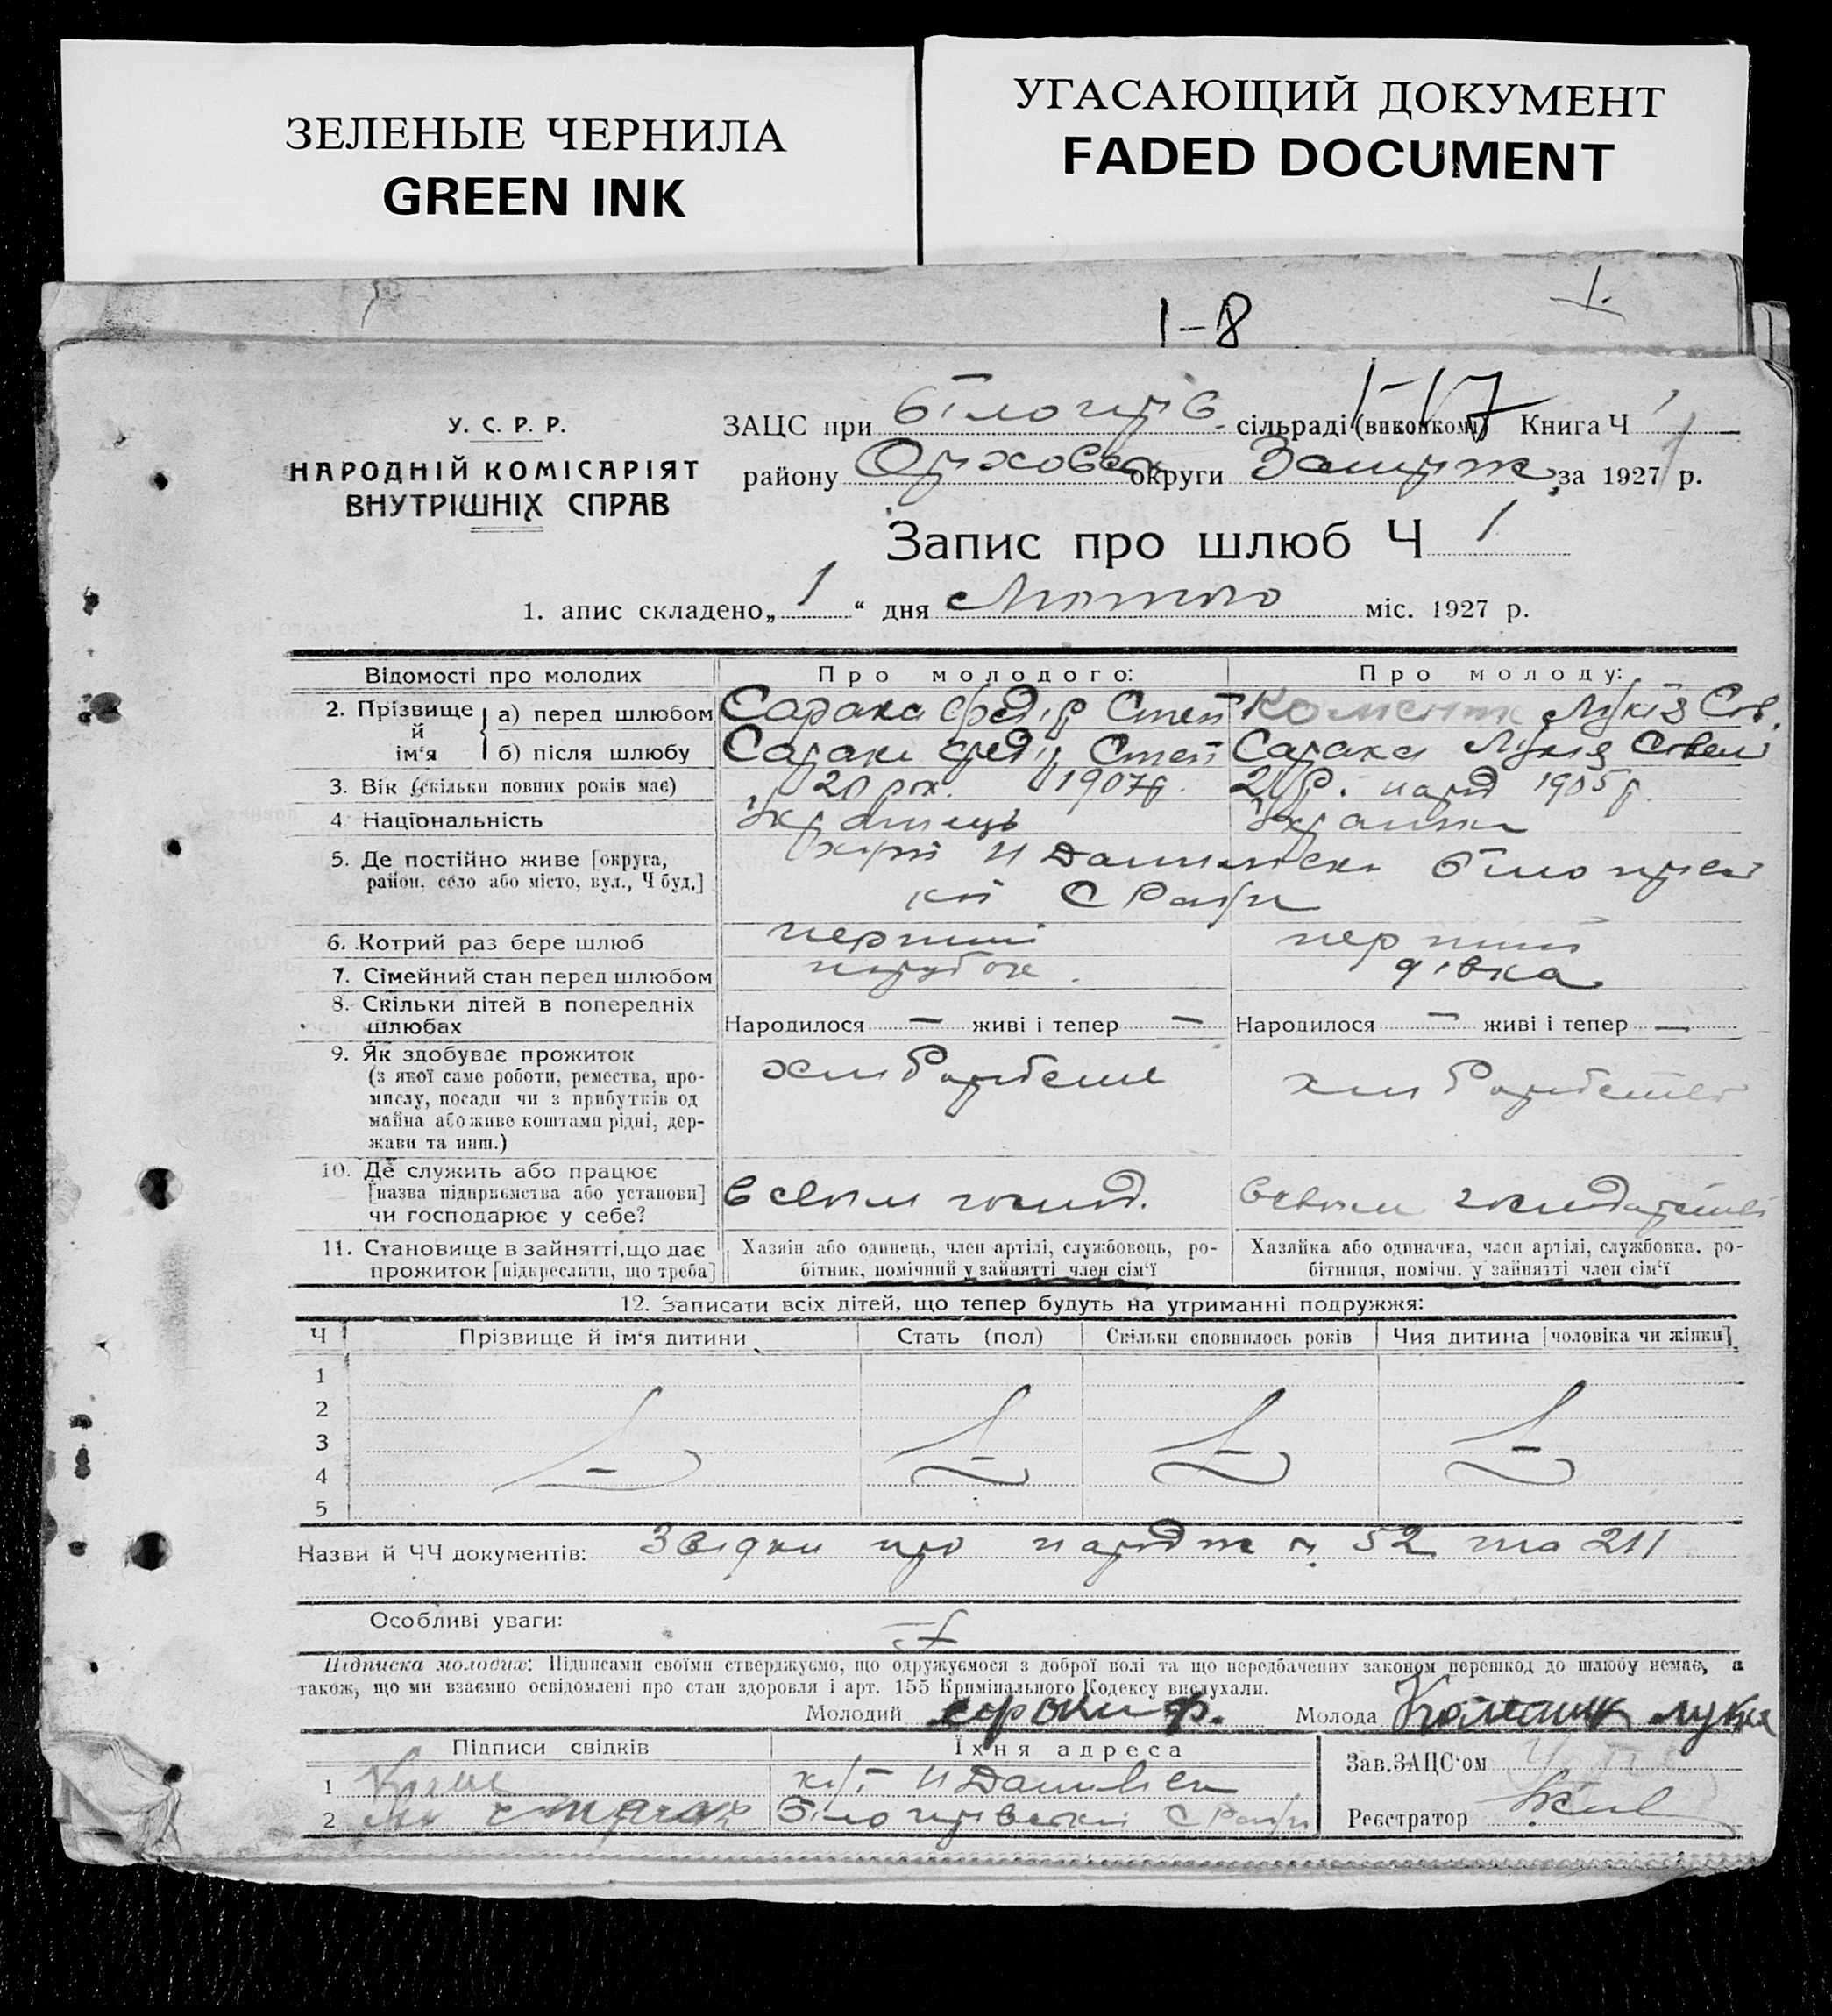 ЗЕЛЕНЫЕ ЧЕРНИЛА
GREEN INK
УГАСАЮЩИЙ ДОКУМЕНТ
FADED DOCUMENT
1.
1-8
1-17
У. С. Р. Р.
НАРОДНІЙ КОМІСАРІЯТ
ВНУТРІШНІХ СПРАВ
ЗАЦС при сільраді (виконкомі) Книга Ч 1
району округи за 1927 р.
Запис про шлюб Ч 1
1. апис складено „ 1 “ дня Лютого міс. 1927 р.
Відомості про молодих Про молодого: Про молоду:
2. Прізвище й ім'я а) перед шлюбом Федір Степ Лукія Сав.
б) після шлюбу Федір Степ Лукія
3. Вік (скільки повних років має) 20 рок. 1907р. 21р. народ 1905 р.
4 Національність Українець Українка
5. Де постійно живе [округа,
район, село або місто, вул., Ч буд.]
С Ради
6. Котрий раз бере шлюб перший перший
7. Сімейний стан перед шлюбом парубок дівка
8. Скільки дітей в попередніх
шлюбах
Народилося — живі і тепер — Народилося — живі і тепер —
9. Як здобуває прожиток
(з якої саме роботи, ремества, про-
мислу, посади чи з прибутків од
майна або живе коштами рідні, дер-
жави та инш.)
10. Де служить або працює
[назва підприємства або установи]
чи господарює у себе?
в своім господ. в своім господарстві
11. Становище в зайнятті, що дає
прожиток [підкреслити, що треба]
Хазяін або одинець, член артілі, службовець, ро-
бітник, помічний у зайнятті член сім'ї
Хазяйка або одиначка, член артілі, службовка, ро-
бітниця, помічн. у зайнятті член сім'ї
12. Записати всіх дітей, що тепер будуть на утриманні подружжя:
Ч Прізвище й ім'я дитини Стать (пол) Скільки сповнилось років Чия дитина [чоловіка чи жінки]
1
2
3
4
5
Назви й ЧЧ документів: Звідки про народж ч. 52 та 211
Особливі уваги:
Підписка молодих: Підписами своїми стверджуємо, що одружуємося з доброї волі та що передбачених законом перешкод до шлюбу немає, а
також, що ми взаємно освідомлені про стан здоровля і арт. 155 Кримінального Кодексу вислухали.
Молодий Молода
Підписи свідків Їхня адреса
Зав. ЗАЦС'ом
1
2 С Ради
Реєстратор